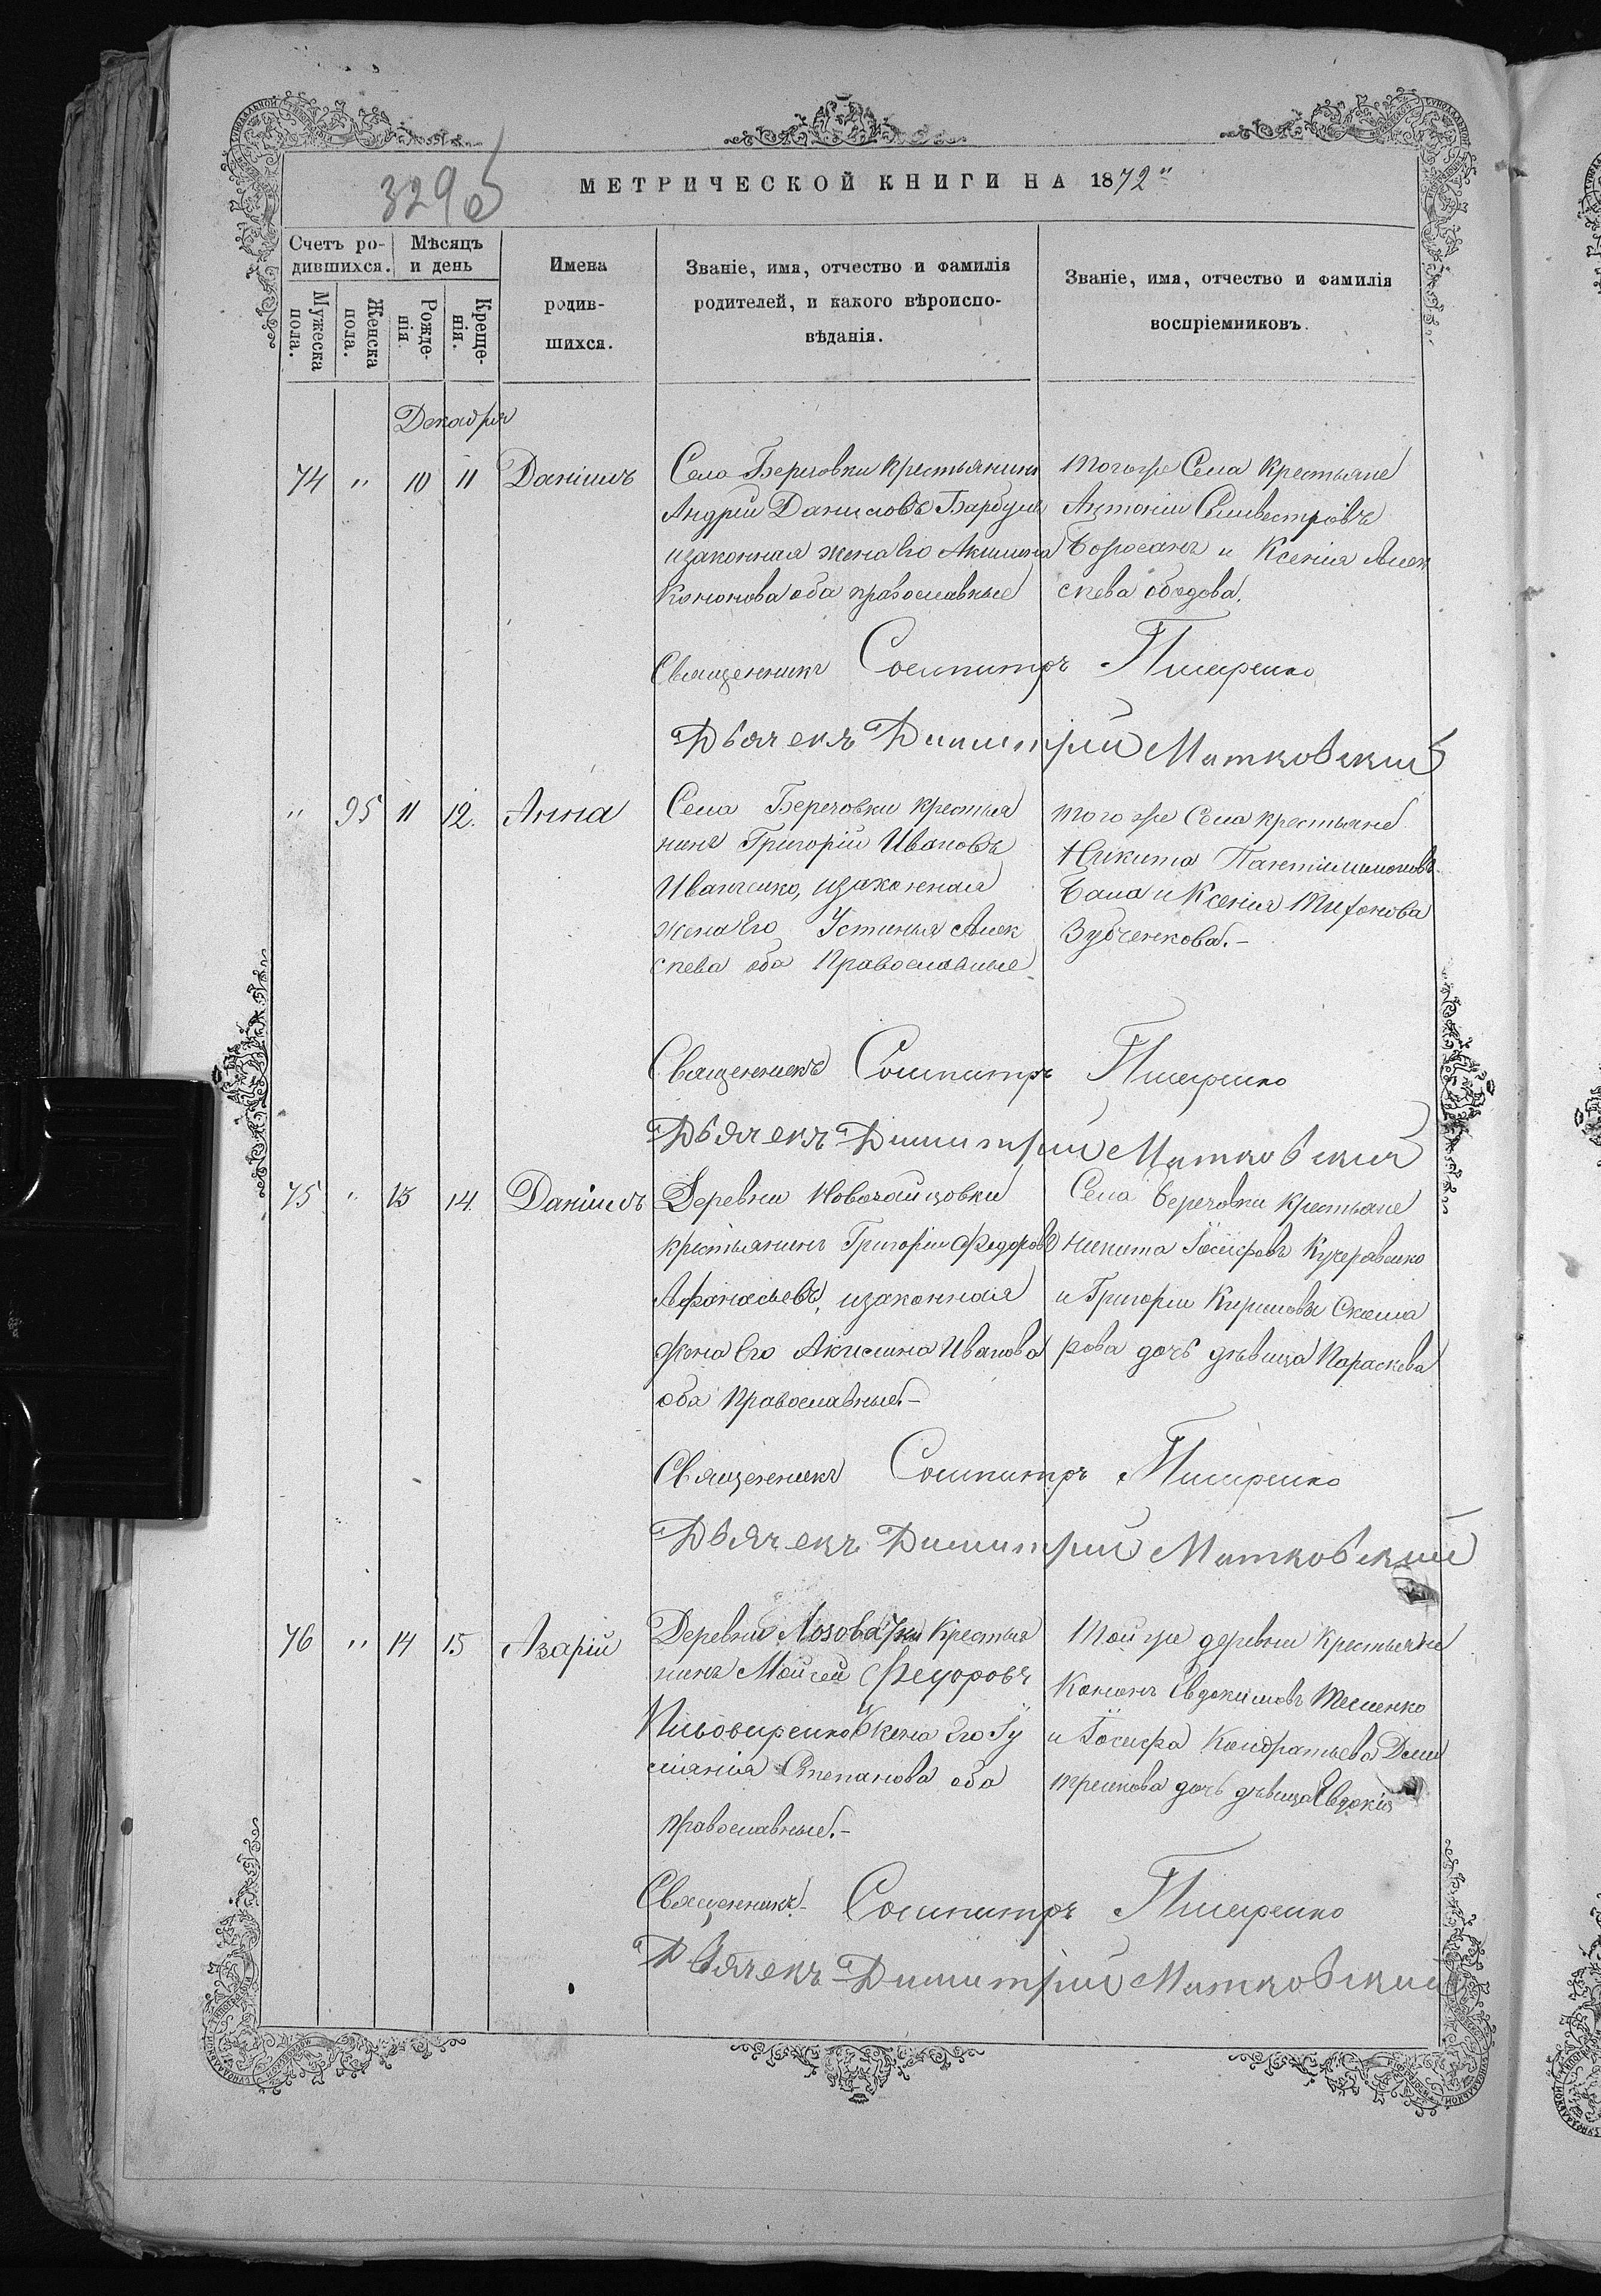 329 об
МЕТРИЧЕСКОЙ КНИГИ НА 1872"
Счетъ ро-
дившихся.
Мѣсяцъ
и день
Имена
родив-
шихся.
Званіе, имя, отчество и фамилія
родителей, и какого вѣроиспо-
вѣданія.
Званіе, имя, отчество и фамилія
воспріемниковъ.
Мужеска
пола.
Женска
пола.
Рожде-
нія.
Креще-
нія.
Декабря
74 " 10 11 Даніилъ
Села Беречовки крестьянинъ
Андрей Даниловъ
изаконная жена Его Акилина
Кононова оба православные
Тогоже Села крестьяне
Антоній Сильвестровъ
и Ксенія Алек
сѣева
Священникъ Сосипатръ Писаренко
Дьячекъ Димитрій Матковскій
" 95 11 12. Анна
Села Беречовки крестья
нинъ Григорій Ивановъ
Иванченко, изаконная
жена Его Устинья Алек
сѣева оба Православные
Того же Села крестьяне
Никита Пантілимоновъ
и Ксенія Тихонова
Зубченкова.-
Священникъ Сосипатръ Писаренко
Дьячекъ Димитрій Матковскій
75 " 13 14. Даніилъ
Деревни
крестьянинъ Григорій Федоровъ
Афанасьевъ, изаконная
жена Его Акилина Иванова
оба Православные.-
Села Беречовки крестьяне
Никита Іосифовъ Кучеравенко
и Григорія Кирилова
рова дочь дѣвица Параскева
Священникъ Сосипатръ Писаренко
Дьячекъ Димитрій Матковскій
76 " 14 15 Азарій
Деревни крестья
нинъ Мойсей Федоровъ
жена Его Іу
ліанія Степанова оба
православные.-
Той же деревни крестьяне
Кононъ Евдокимовъ
и Іосифа Кондратьева
дочь дѣвица Евдокія
Священникъ Сосипатръ Писаренко
Дьячекъ Димитрій Матковскій